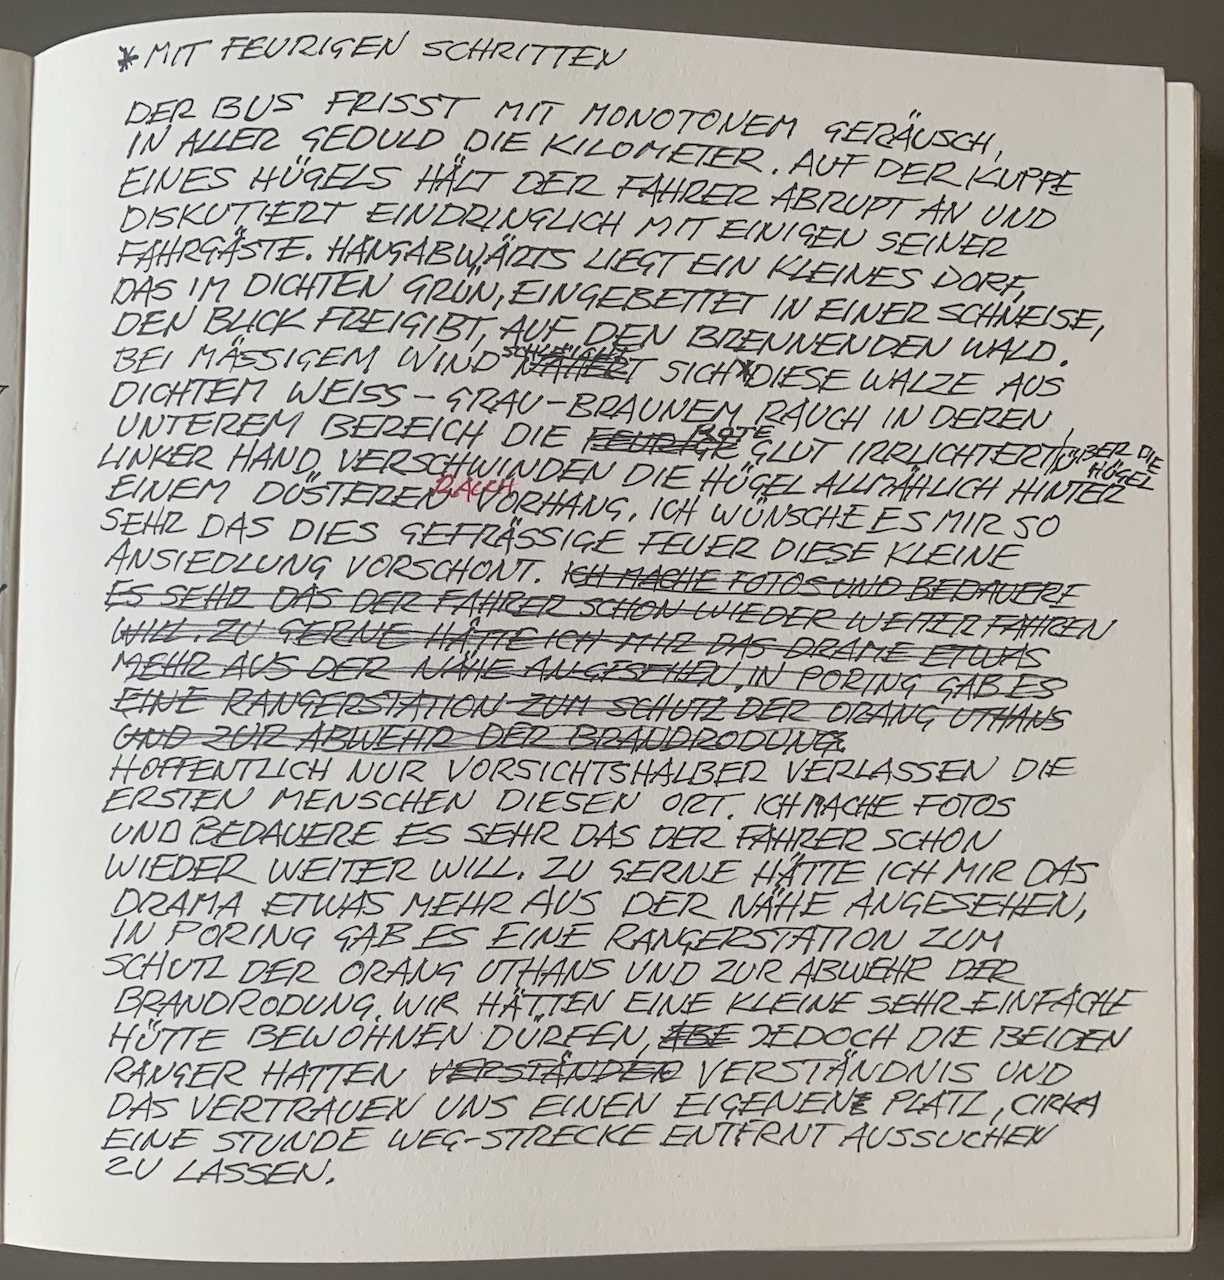 * MIT FEURIGEN SCHRITTEN
DER BUS FRISST MIT MONOTONEM GERÄUSCH,
IN ALLER GEDULD DIE KILOMETER. AUF DER KUPPE
EINES HÜGELS HÄLT DER FAHRER ABRUPT AN UND
DISKUTIERT EINDRINGLICH MIT EINIGEN SEINER
FAHRGÄSTE. HANGABWÄRTS LIEGT EIN KLEINES DORF,
DAS IM DICHTEN GRÜN, EINGEBETTET IN EINER SCHNEISE,
DEN BLICK FREIGIBT, AUF DEN BRENNENDEN WALD.
BEI MÄSSIGEM WIND NÄHERT SICH DIESE WALZE AUS
DICHTEM WEISS-GRAU-BRAUNEM RAUCH IN DEREN
UNTEREM BEREICH DIE FEURIGE ROTE GLUT IRRLICHTERT, ÜBER DIE HÜGEL
LINKER HAND VERSCHWINDEN DIE HÜGEL ALLMÄHLICH HINTER
EINEM DÜSTEREN RAUCH VORHANG. ICH WÜNSCHE ES MIR SO
SEHR DAS DIES GEFRÄSSIGE FEUER DIESE KLEINE
ANSIEDLUNG VORSCHONT. ICH MACHE FOTOS UND BEDAUERE
ES SEHR DAS DER FAHRER SCHON WIEDER WEITER FAHREN
WILL. ZU GERNE HÄTTE ICH MIR DAS DRAME ETWAS
MEHR AUS DER NÄHE ANGESEHEN, IN PORING GAB ES
EINE RANGERSTATION ZUM SCHUTZ DER ORANG UTHANS
UND ZUR ABWEHR DER BRANDRODUNG.
HOFFENTLICH NUR VORSICHTSHALBER VERLASSEN DIE
ERSTEN MENSCHEN DIESEN ORT. ICH MACHE FOTOS
UND BEDAUERE ES SEHR DAS DER FAHRER SCHON
WIEDER WEITER WILL. ZU GERNE HÄTTE ICH MIR DAS
DRAMA ETWAS MEHR AUS DER NÄHE ANGESEHEN,
IN PORING GAB ES EINE RANGERSTATION ZUM
SCHUTZ DER ORANG UTHANS UND ZUR ABWEHR DER
BRANDRODUNG. WIR HÄTTEN EINE KLEINE SEHR EINFACHE
HÜTTE BEWOHNEN DÜRFEN, ABE JEDOCH DIE BEIDEN
RANGER HATTEN VERSTÄNDEN VERSTÄNDNIS UND
DAS VERTRAUEN UNS EINEN EIGENEN PLATZ, CIRKA
EINE STUNDE WEG-STRECKE ENTFERNT AUSSUCHEN
ZU LASSEN.